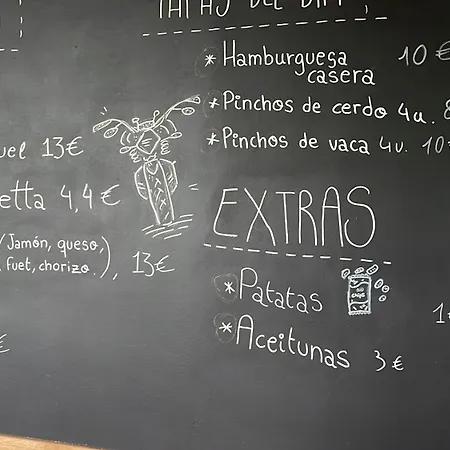 TAPAS DEL DÍA
* Hamburguesa casera 10 €
* Pinchos de cerdo 4u. 8
* Pinchos de vaca 4u. 10
13€
4,4 €
(Jamón, queso,
fuet, chorizo.), 13€
€
EXTRAS
* Patatas 1
* Aceitunas 3 €